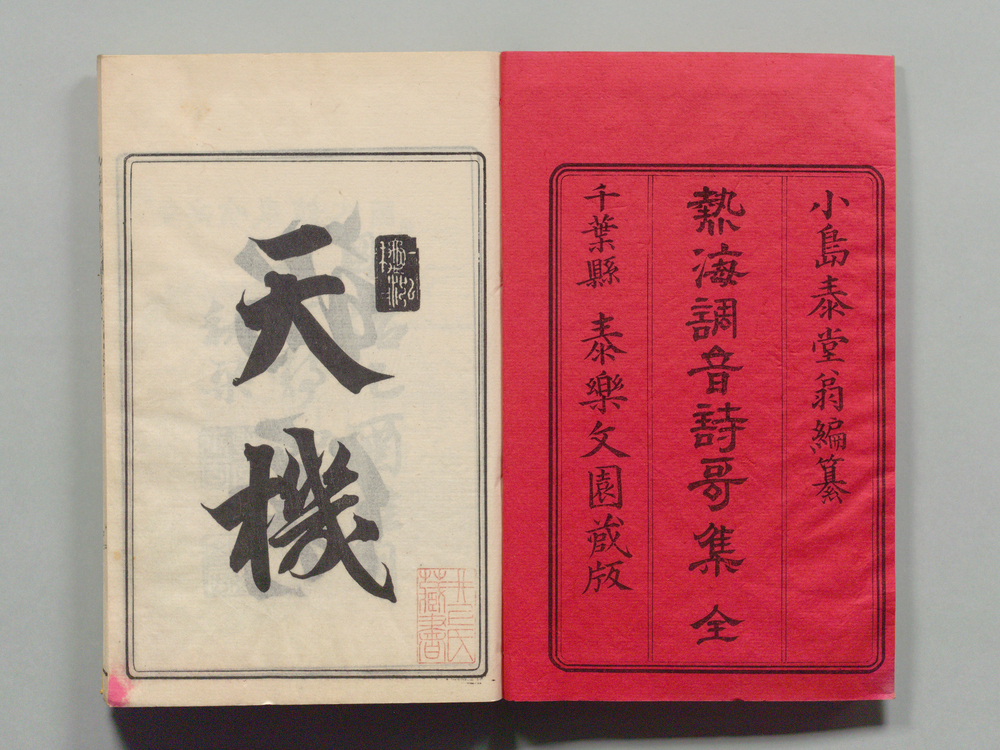 小島泰堂翁編纂
熱海調音詩哥集 全
千葉縣 泰樂文園蔵版
天機
藏書